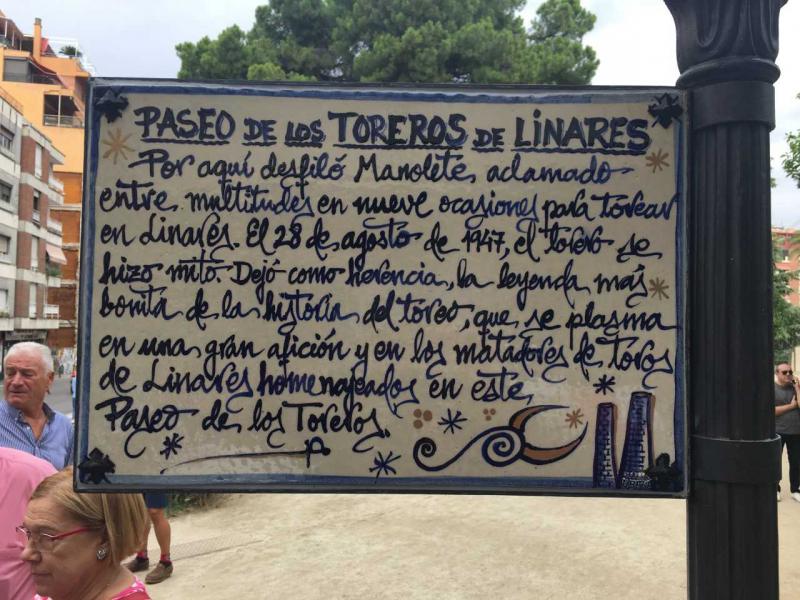 PASEO DE LOS TOREROS DE LINARES
Por aquí desfiló Manolete, aclamado
entre multitudes en nueve ocasiones para torear
en Linares. El 28 de agosto de 1947, el torero se
hizo mito. Dejó como herencia, la leyenda más
bonita de la historia del toreo, que se plasma
en una gran afición y en los matadores de toros
de Linares homenajeados en este
Paseo de los Toreros.